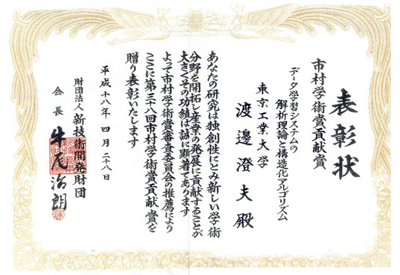 表彰状
市村学術賞貢献賞
データ学習システムの
解析理論と構造化アルゴリズム
東京工業大学
渡邊澄夫殿
あなたの研究は独創性にとみ新しい学術
分野を開拓し産業の発展に貢献することが
大きくその功績は誠に顕著であります
よって市村学術賞審査委員会の推薦により
ここに第三十八回市村学術賞貢献賞を
贈り表彰いたします
平成十八年四月二十八日
財団法人新技術開発財団
会長 牛尾治朗